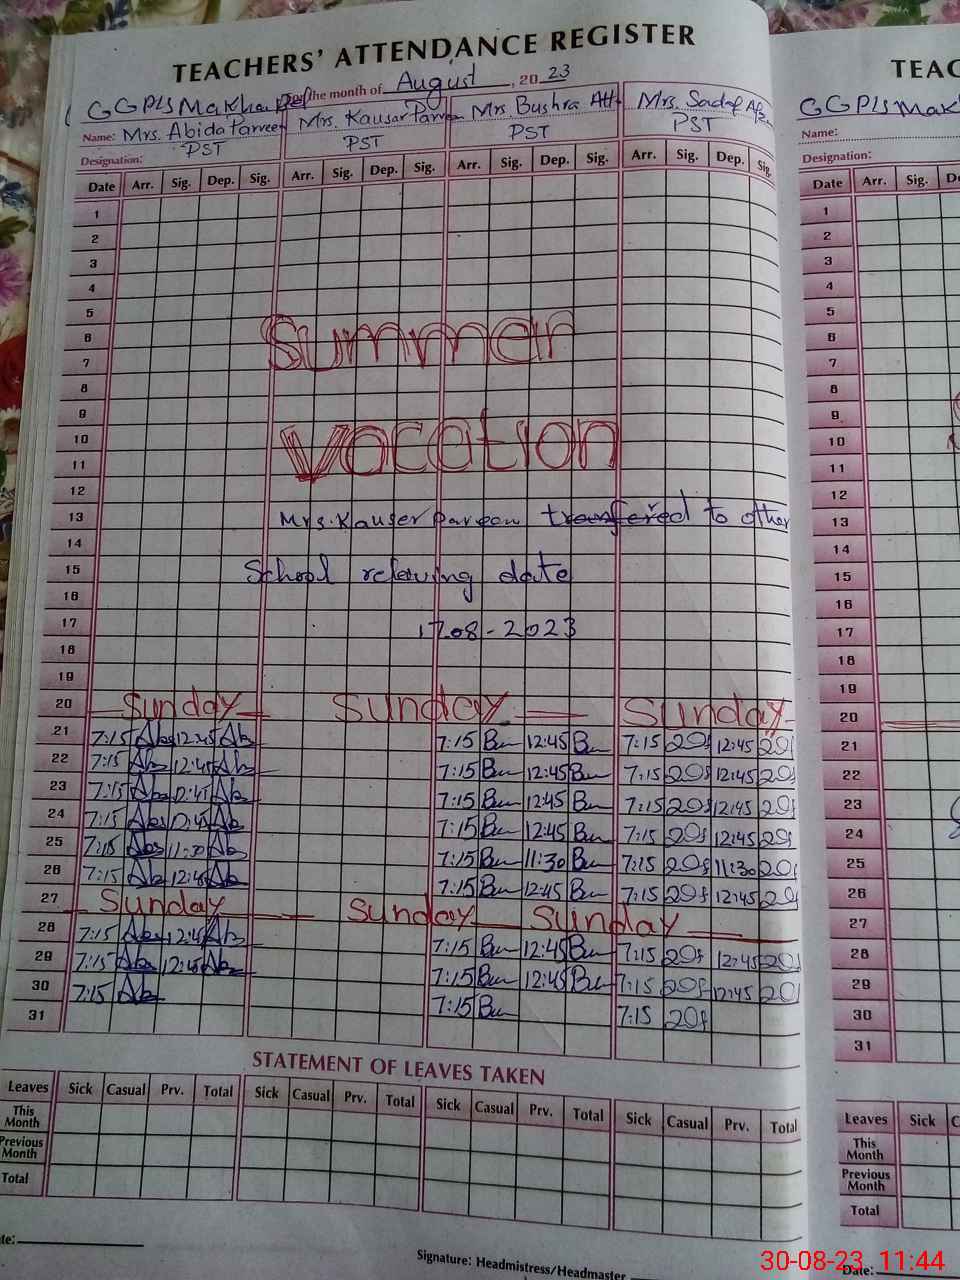 TEACHERS' ATTENDANCE REGISTER
For the month of August, 2023
GGPLS Makha
Name: Mrs. Abida Parveen Mrs. Kausar Parveen Mrs. Bushra Att Mrs. Sadaf Af
Designation: PST PST PST PST
Date Arr. Sig. Dep. Sig. Arr. Sig. Dep. Sig. Arr. Sig. Dep. Sig. Arr. Sig. Dep. Sig.
1
2
3
4
5
6
Summer
7
8
9
10
vacation
11
12
13 Mrs. Kauser Parveen transfered to other
14
15 School releiving date
16
17 17-08-2023
18
19
20 Sunday Sunday Sunday
21 7:15 12:45 7:15 12:45 7:15 12:45
22 7:15 12:45 7:15 12:45 7:15 12:45
23 7:15 12:45 7:15 12:45 7:15 12:45
24 7:15 12:45 7:15 12:45 7:15 12:45
25 7:15 11:30 7:15 11:30 7:15 11:30
26 7:15 12:45 7:15 12:45 7:15 12:45
27 Sunday Sunday Sunday
28 7:15 12:45 7:15 12:45 7:15 12:45
29 7:15 12:45 7:15 12:45 7:15 12:45
30 7:15 7:15 7:15
31
STATEMENT OF LEAVES TAKEN
Leaves Sick Casual Prv. Total Sick Casual Prv. Total Sick Casual Prv. Total Sick Casual Prv. Total
This Month
Previous Month
Total
te:
Signature: Headmistress/Headmaster
TEAC
GGPLS Mak
Name:
Designation:
Date Arr. Sig. De
1
2
3
4
5
6
7
8
9
10
11
12
13
14
15
16
17
18
19
20
21
22
23
24
25
26
27
28
29
30
31
Leaves Sick C
This Month
Previous Month
Total
Date:
30-08-23 11:44